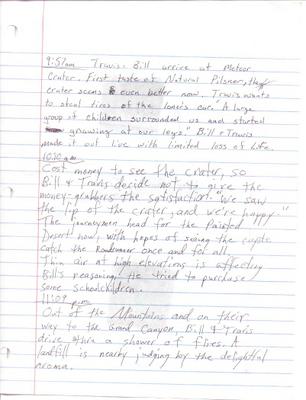 9:57am Travis & Bill arrive at Meteor
Crater. First taste of Natural Pilsner, the
crater seems even better now. Travis wants
to steal tires of the loner's car. "A large
group of children surrounded us and started
gnawing at our legs." Bill & Travis
made it out live with limited loss of life.
10:10 am
Cost money to see the crater, so
Bill & Travis decide not to give the
money-grabbers the satisfaction. "We saw
the lip of the crater, and we're happy."
The journeymen head for the Painted
Desert now, with hopes of seeing the coyote
catch the Roadrunner once and for all.
Thin air at high elevations is affecting
Bill's reasoning. He tried to purchase
some schoolchildren.
11:09 p.m.
Out of the Mountains and on their
way to the Grand Canyon, Bill & Travis
drive thru a shower of flies. A
landfill is nearby judging by the delightful
aroma.